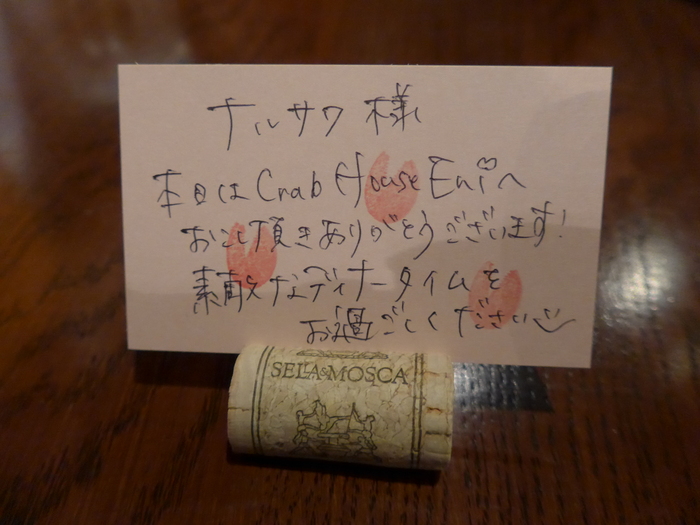 ナルサワ様
本日は Crab House Eniへ
おこし頂きありがとうございます!
素敵なディナータイムを
お過ごしください
SELLA&MOSCA